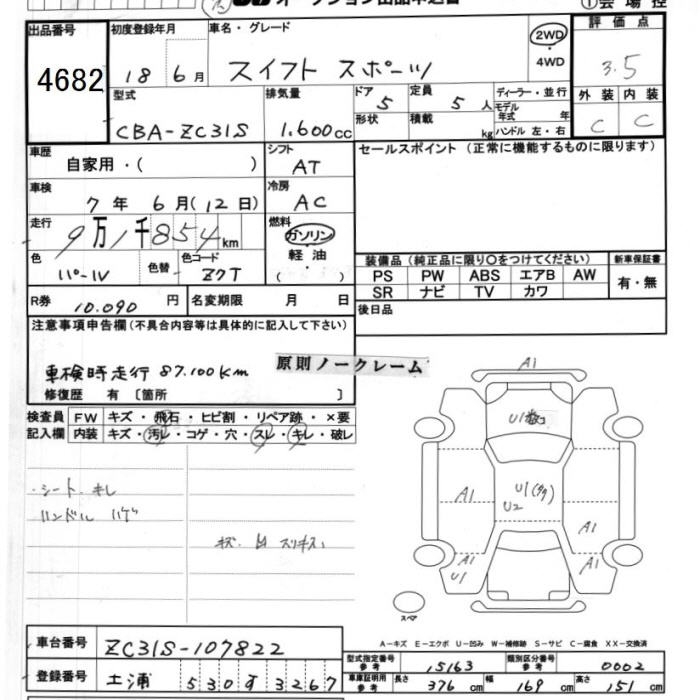 オークション出品申込書 ①会場控
出品番号 初度登録年月 車名・グレード 2WD 評価点
4682 18 6月 スイフト スポーツ ・4WD 3.5
型式 排気量 ドア 5 定員 5人 ディーラー・並行 外装 内装
CBA-ZC31S 1.600cc 形状 積載 kg モデル年式 年 C C
ハンドル 左・右
車歴 自家用・( ) シフト AT セールスポイント (正常に機能するものに限ります)
車検 7年 6月(12日) 冷房 AC
走行 9万1千854km 燃料 ガソリン
色 パールV 色替 色コード Z7T 軽油 ( )
装備品 (純正品に限り○をつけてください) 新車保証書
PS PW ABS エアB AW 有・無
SR ナビ TV カワ
R券 10.090円 名変期限 月 日 後日品
注意事項申告欄(不具合内容等は具体的に記入して下さい)
車検時走行 87.100Km 原則ノークレーム
修復歴 有 〔箇所 〕
検査員 FW キズ・飛石・ヒビ割・リペア跡・×要
記入欄 内装 キズ・汚レ・コゲ・穴・スレ・キレ・破レ
・シート キレ
ハンドル ハゲ
キズ 凹 スリキズ
A1
U1
U1
U2
A1
A1
A1
U1
A1
スペア
A-キズ E-エクボ U-凹み W-補修跡 S-サビ C-腐食 XX-交換済
車台番号 ZC31S-107822
型式指定番号 参考 15163 類別区分番号 参考 0002
登録番号 土浦 530す3267
車庫証明用 参考 長さ 376cm 幅 169cm 高さ 151cm